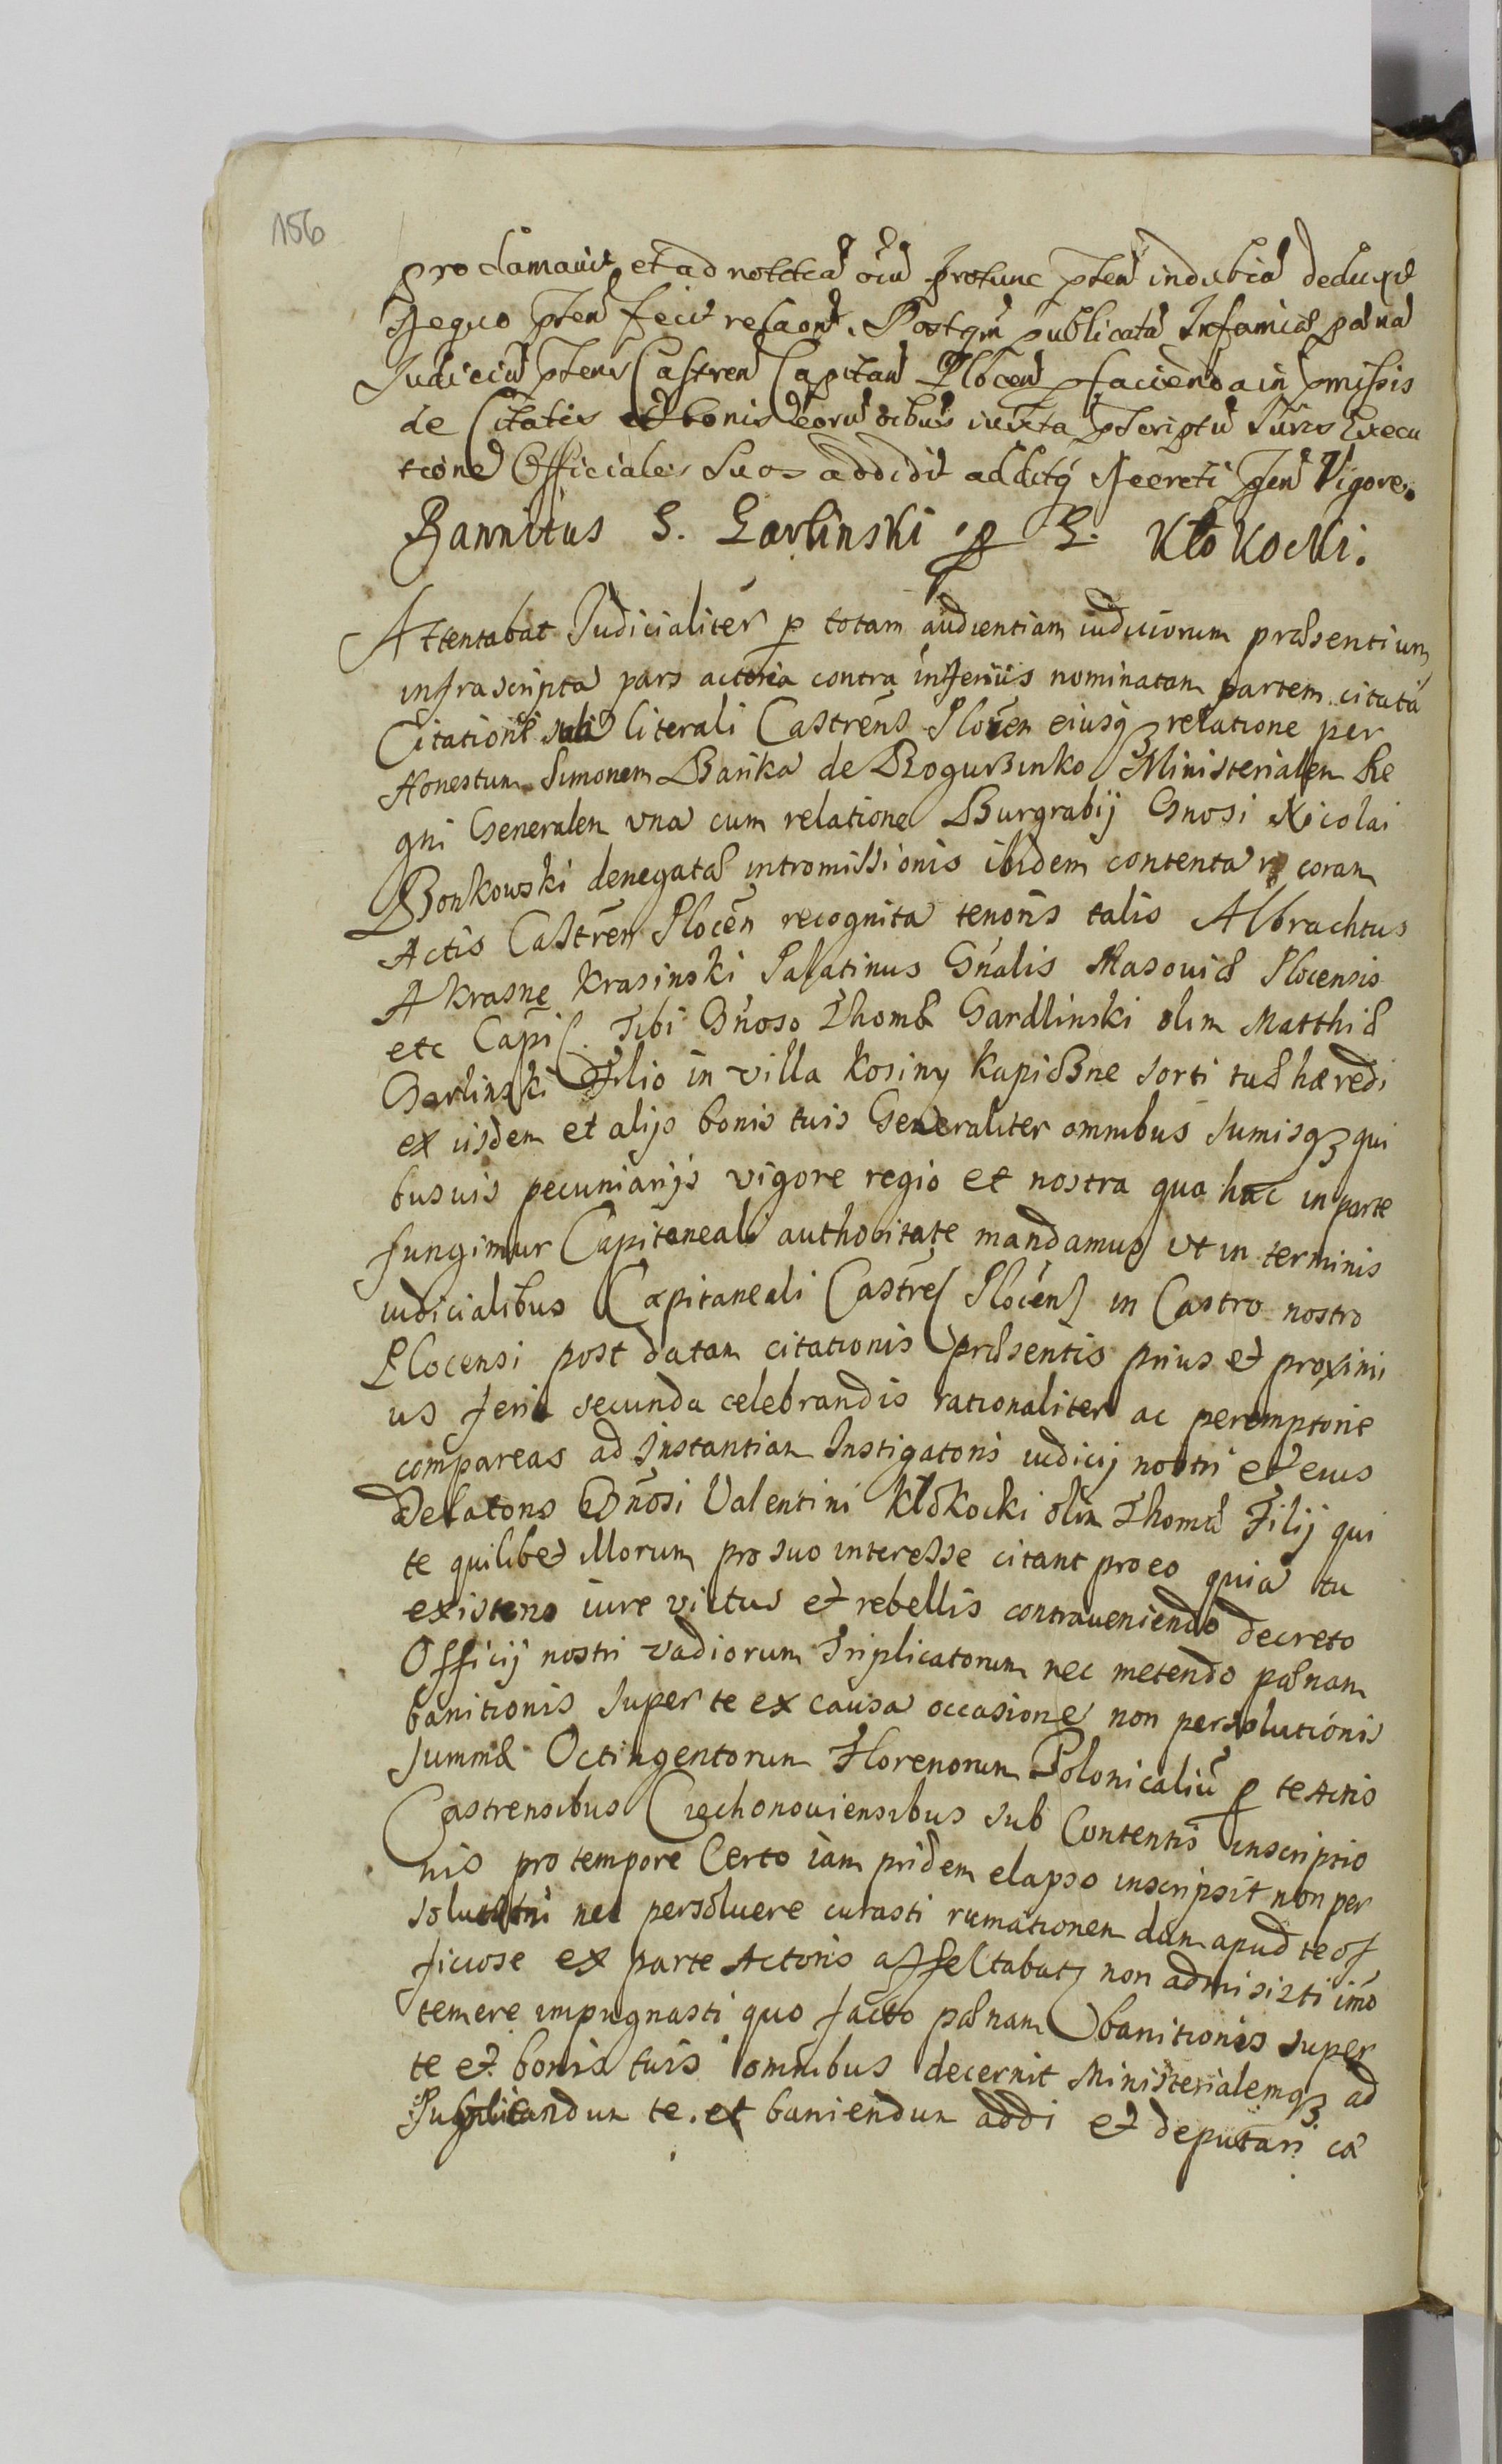 156
proclamavit et ad notitiã oiũ protunc pñtẽ indubiã deduxit
Deque pñtem fecit relaone. Postqm publicatã Infamiæ pænã
Iudiciũ pñens Castren Capitan Plocen faciendo in pmissis
de Citatis et bonis eorũ oibus iuxta pscriptũ Iuris Execu
tione Officiales suos addidit additq Decreti pñn Vigore.
Bannitus G. Garlinski p G. Kłokocki.
Attentabat Iudicialiter p totam audientiam iudiciorum præsentium
infrascripta pars actorea contra inferius nominatam partem citatã
Citatione literali Castrens Plocen eiusq relatione per
Honestum Simonem Bańka de Boguszinko Ministerialem Re
gni Generalem vna cum relatione Burgrabij Gnosi Nicolai
Bonkowski denegatæ intromissionis ibidem contenta coram
Actis Castren Plocen recognita tenoris talis Albrachtus
A Krasne Krasinski Palatinus Gnalis Masouiæ Plocensis
etc Capi. Tibi Gnoso Thomæ Gardlinski olim Matthiæ
Garlinski Filio in villa Kosiny Kapiczne sorti tuæ hæredi
ex iisdem et alijs bonis tuis Generaliter omnibus sumisq qui
busuis pecuniarijs vigore regio et nostra qua hac in parte
fungimur Capitaneali authoritate mandamus vt in terminis
iudicialibus Capitaneali Castren Plocens in Castro nostro
Plocensi post datam citationis præsentis prius et proximi
us feria secunda celebrandis rationaliter ac peremptorie
compareas ad Instantiam Instigatoris iudicij nostri et eius
Delatoris Gnosi Valentini Kłokocki olim Thomæ Filij qui
te quilibet illorum pro suo interesse citant pro eo quia tu
existens iure victus et rebellis contraueniendo decreto
Officij nostri vadiorum Triplicatorum nec metendo pænam
banitionis super te ex causa occasione non persolutionis
summæ Octingentorum Florenorum Polonicaliũ p te Actis
Castrensibus Ciechonouiensibus sub Contentis inscriptio
nis pro tempore Certo iam pridem elapso inscripsit non per
nec persoluere curasti rumationem dum apud te of
ficiose ex parte Actoris affectabatʒ non admisisti imo
temere impugnasti quo facto pænam banitionis super
te et bonis tuis omnibus decernit Ministerialemqʒ ad
Publicandum te et baniendum addi et deputari cã